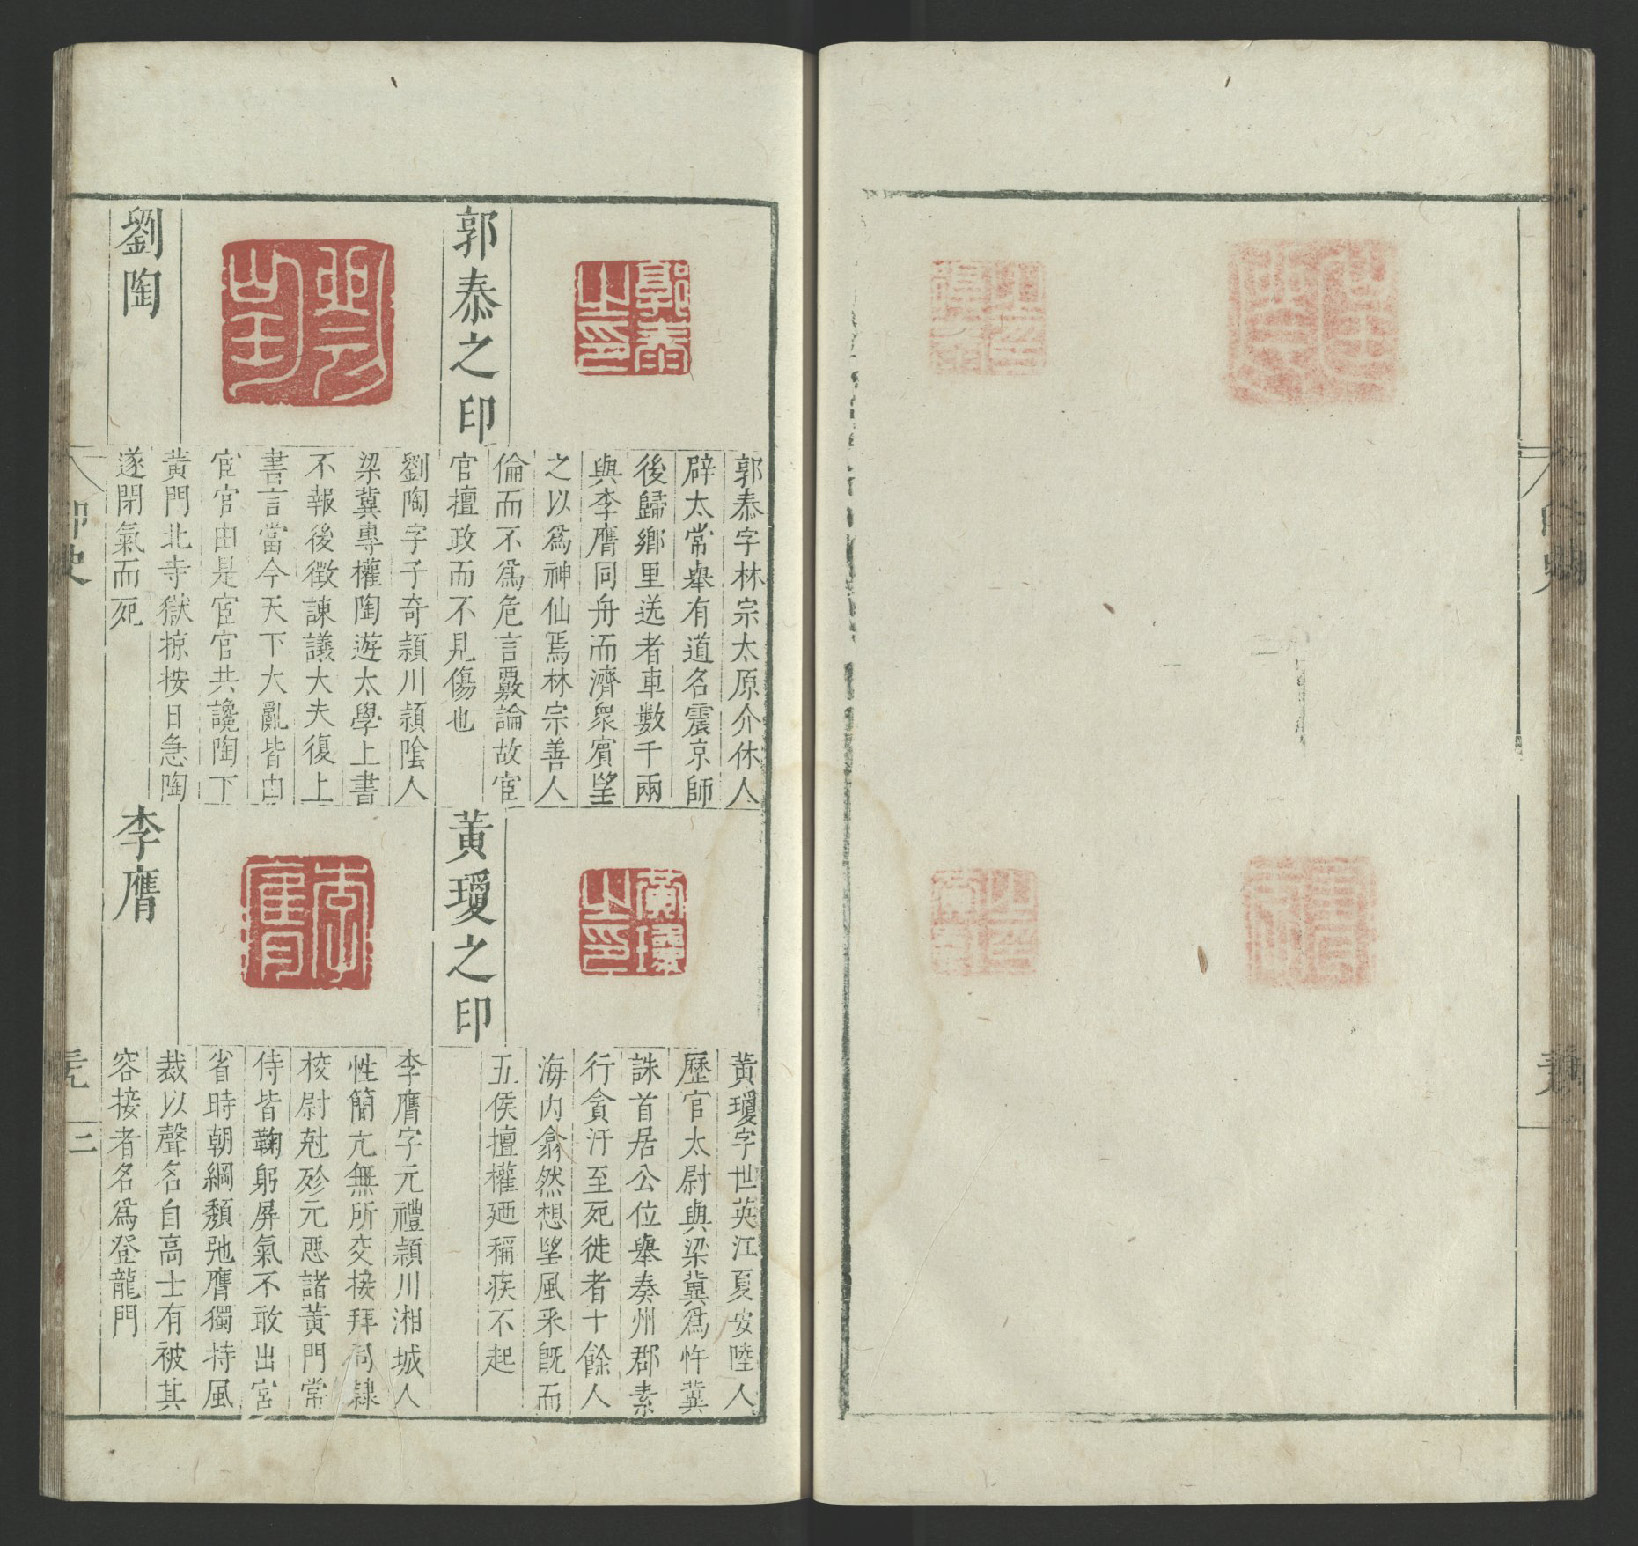 郭泰之印
郭泰字林宗太原介休人
辟太常舉有道名震京師
後歸鄉里送者車數千兩
與李膺同舟而濟衆賓望
之以爲神仙焉林宗善人
倫而不爲危言覈論故宦
官擅政而不見傷也
劉陶
劉陶字子奇潁川潁陰人
梁冀專權陶遊太學上書
不報後徵諫議大夫復上
書言當今天下大亂皆由
宦官由是宦官共讒陶下
黃門北寺獄掠按日急陶
遂閉氣而死
黃瓊之印
黃瓊字世英江夏安陸人
歷官太尉與梁冀爲忤冀
誅首居公位舉奏州郡素
行貪汙至死徙者十餘人
海內翕然想望風采旣而
五侯擅權廼稱疾不起
李膺
李膺字元禮潁川湘城人
性簡亢無所交接拜司隸
校尉尅殄元惡諸黃門常
侍皆鞠躬屏氣不敢出宮
省時朝綱頹弛膺獨持風
裁以聲名自高士有被其
容接者名爲登龍門
印史
二